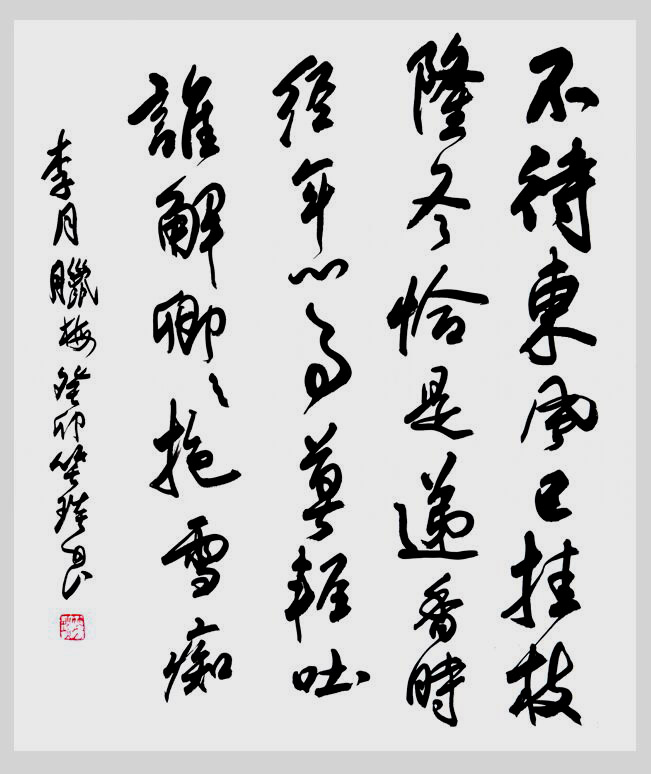 不待東風已挂枝
隆冬恰是遞香時
經年心事莫輕吐
誰解卿〻抱雪痴
李月臘梅癸卯